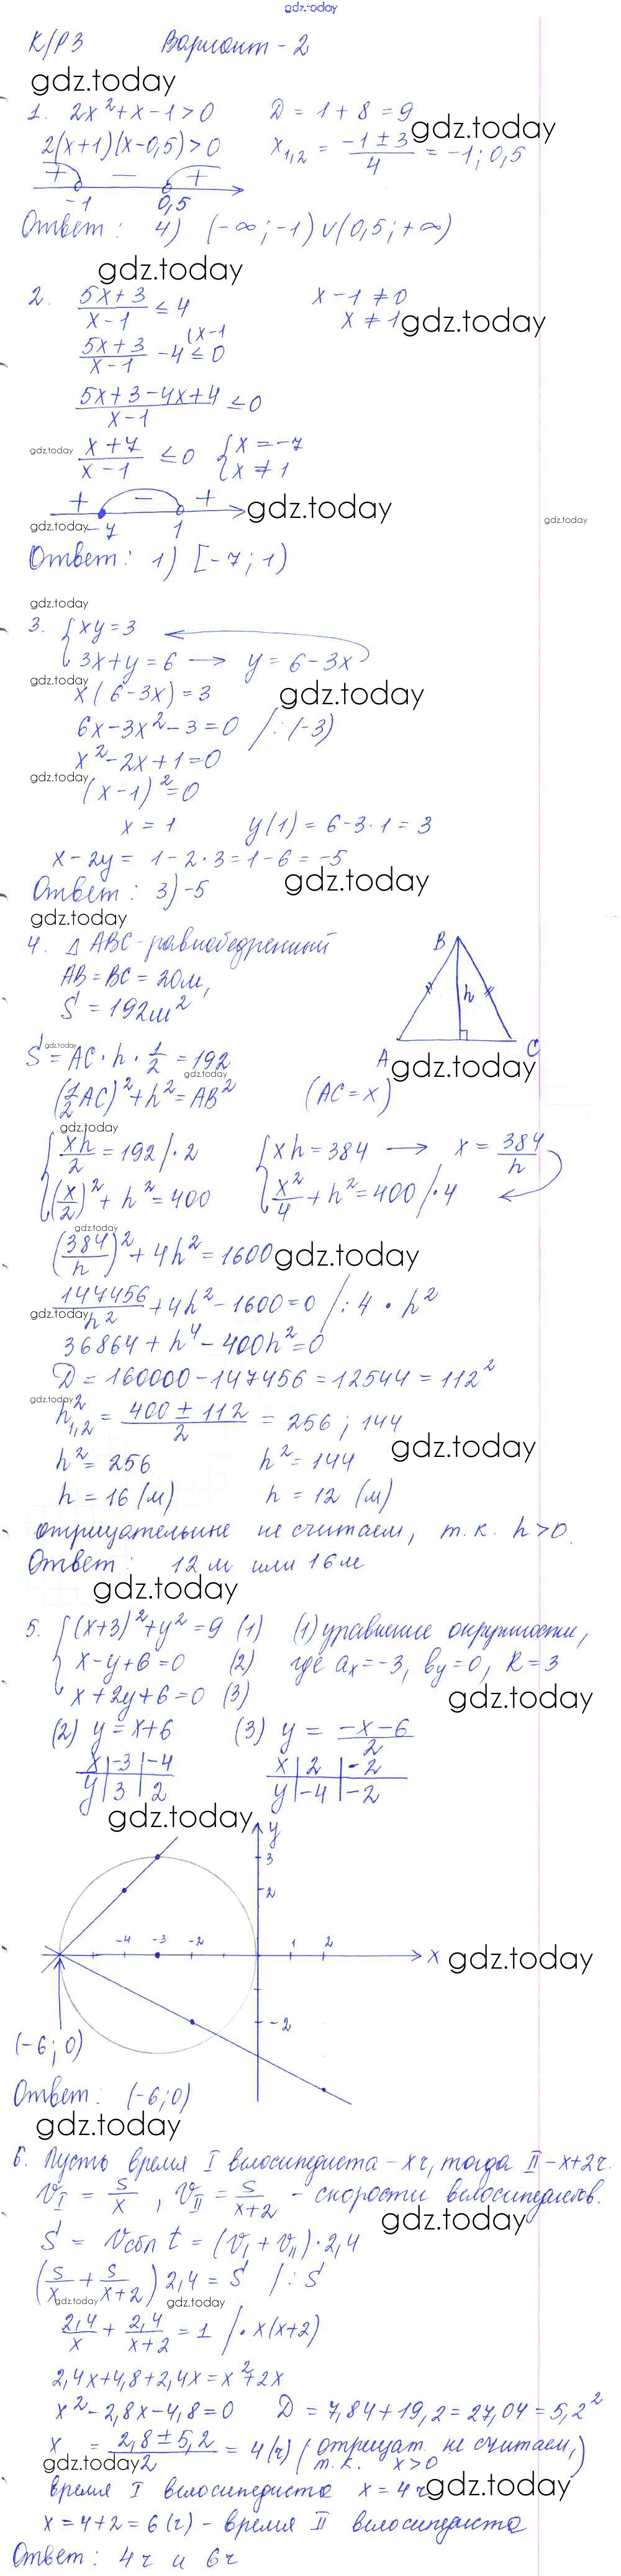 gdz.today
К/Р 3 Вариант - 2
gdz.today
1. 2x² + x - 1 > 0 D = 1 + 8 = 9
gdz.today
2(x+1)(x-0,5) > 0 x₁,₂ = (-1 ± 3)/4 = -1; 0,5
+ - +
-1 0,5
Ответ: 4) (-∞; -1) ∪ (0,5; +∞)
gdz.today
2. (5x+3)/(x-1) ≤ 4 x - 1 ≠ 0
x ≠ 1
gdz.today
(5x+3)/(x-1) - 4 (x-1 ≤ 0
(5x+3-4x+4)/(x-1) ≤ 0
gdz.today
(x+7)/(x-1) ≤ 0 { x = -7
x ≠ 1
+ - +
gdz.today
gdz.today
gdz.today
-7 1
Ответ: 1) [-7; 1)
gdz.today
3. { xy = 3
3x + y = 6 → y = 6 - 3x
gdz.today
x(6-3x) = 3
gdz.today
6x - 3x² - 3 = 0 /:(-3)
x² - 2x + 1 = 0
gdz.today
(x-1)² = 0
x = 1 y(1) = 6 - 3·1 = 3
x - 2y = 1 - 2·3 = 1 - 6 = -5
gdz.today
Ответ: 3) -5
gdz.today
4. Δ ABC - равнобедренный
B
AB = BC = 20м,
S = 192м²
h
gdz.today
S = AC · h · 1/2 = 192
A C
gdz.today
gdz.today
(1/2 AC)² + h² = AB² (AC = x)
gdz.today
{ xh/2 = 192 /·2 { xh = 384 → x = 384/h
(x/2)² + h² = 400 x²/4 + h² = 400 /·4
gdz.today
(384/h)² + 4h² = 1600
gdz.today
147456/h² + 4h² - 1600 = 0 /:4 · h²
gdz.today
36864 + h⁴ - 400h² = 0
D = 160000 - 147456 = 12544 = 112²
gdz.today
h²₁,₂ = (400 ± 112)/2 = 256; 144
gdz.today
h² = 256 h² = 144
h = 16 (м) h = 12 (м)
отрицательные не считаем, т.к. h > 0.
Ответ: 12 м или 16 м
gdz.today
5. { (x+3)² + y² = 9 (1) (1) уравнение окружности,
x - y + 6 = 0 (2) где aₓ = -3, bᵧ = 0, R = 3
x + 2y + 6 = 0 (3)
gdz.today
(2) y = x + 6 (3) y = (-x-6)/2
x | -3 | -4 x | 2 | -2
y | 3 | 2 y | -4 | -2
gdz.today
y
3
2
-4 -3 -2 1 2
x
gdz.today
-2
(-6; 0)
Ответ: (-6; 0)
gdz.today
6. Пусть время I велосипедиста - x ч, тогда II - x + 2 ч.
V_I = S/x, V_II = S/(x+2) - скорости велосипедистов.
gdz.today
S = Vсбл t = (V_I + V_II) · 2,4
(S/x + S/(x+2)) 2,4 = S /: S
gdz.today
gdz.today
2,4/x + 2,4/(x+2) = 1 /· x(x+2)
2,4x + 4,8 + 2,4x = x² + 2x
x² - 2,8x - 4,8 = 0 D = 7,84 + 19,2 = 27,04 = 5,2²
x = (2,8 ± 5,2)/2 = 4 (ч) (отрицат. не считаем,
т.к. x > 0)
gdz.today
время I велосипедиста x = 4 ч
gdz.today
x = 4 + 2 = 6 (ч) - время II велосипедиста
Ответ: 4 ч и 6 ч